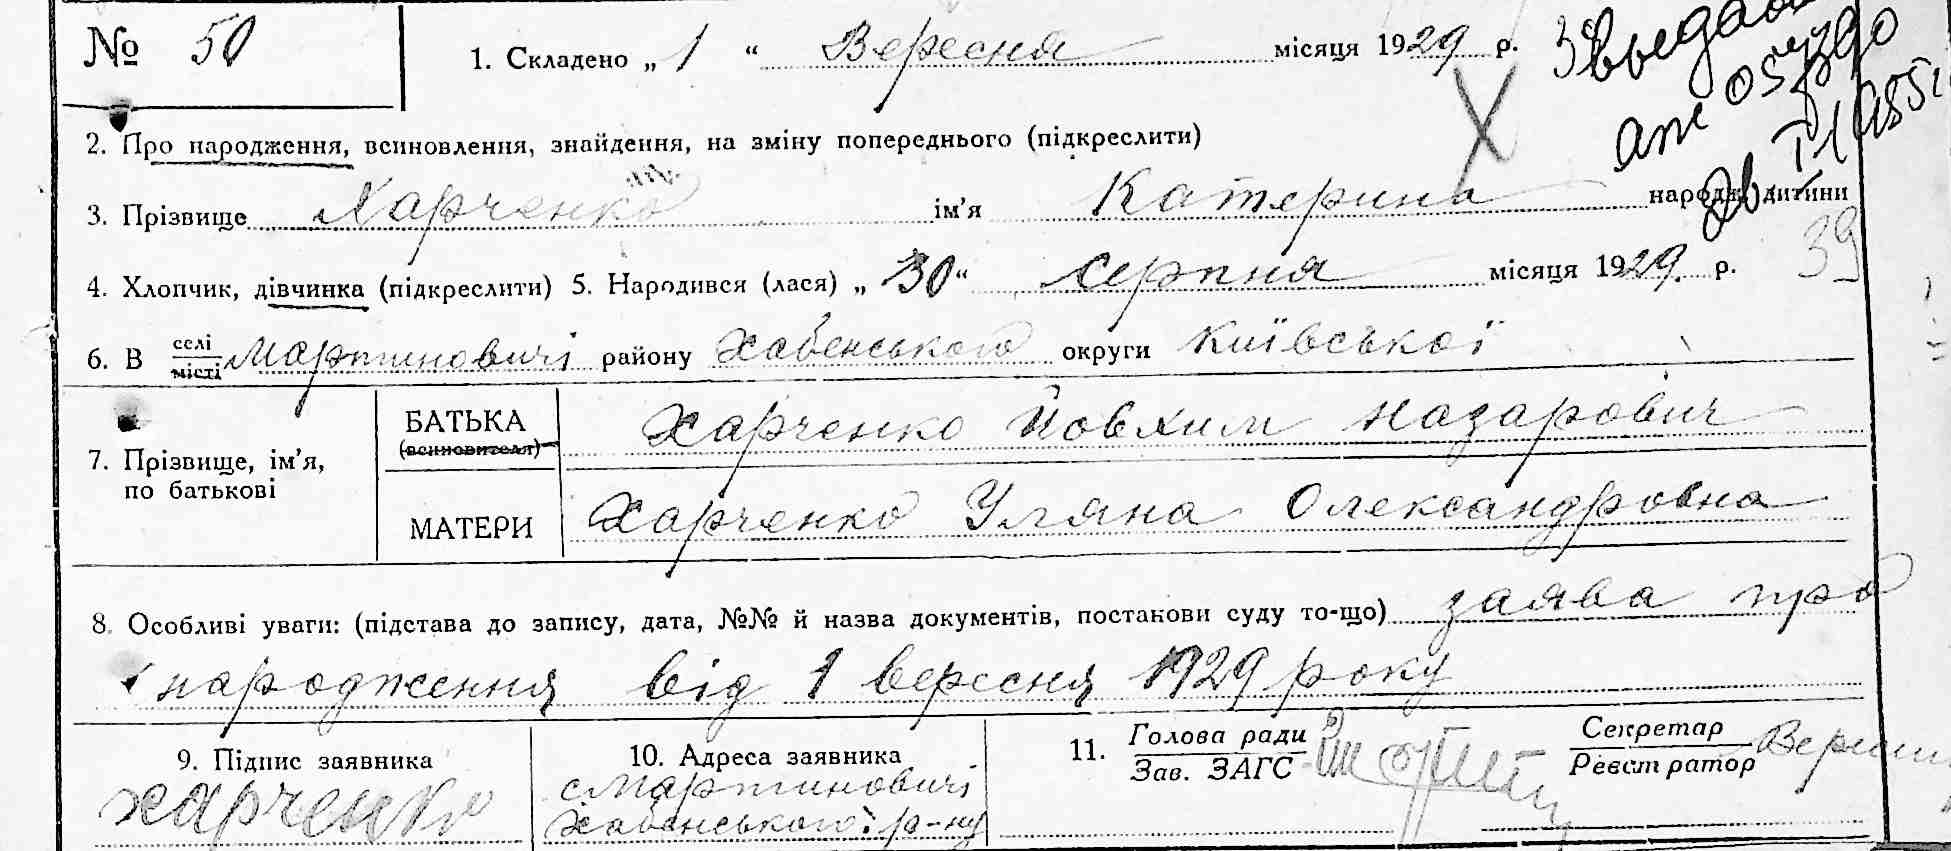 № 50
1. Складено „ 1 “ Вересня місяця 1929 р.
2. Про народження, всиновлення, знайдення, на зміну попереднього (підкреслити)
3. Прізвище Харченко ім’я Катерина народж. дитини
39
4. Хлопчик, дівчинка (підкреслити) 5. Народився (лася) „ 30 “ серпня місяця 1929 р.
6. В селі місті Мартиновичі району Хабенського округи Київської
7. Прізвище, ім’я, по батькові
БАТЬКА (всиновителя) Харченко Йовхим Назарович
МАТЕРИ Харченко Уляна Олександровна
8. Особливі уваги: (підстава до запису, дата, №№ й назва документів, постанови суду то-що) заява про
народження від 1 вересня 1929 року
9. Підпис заявника
Харченко
10. Адреса заявника
с Мартиновичі
Хабенського р-ну
11. Голова ради
Зав. ЗАГС
Секретар
Реєстратор